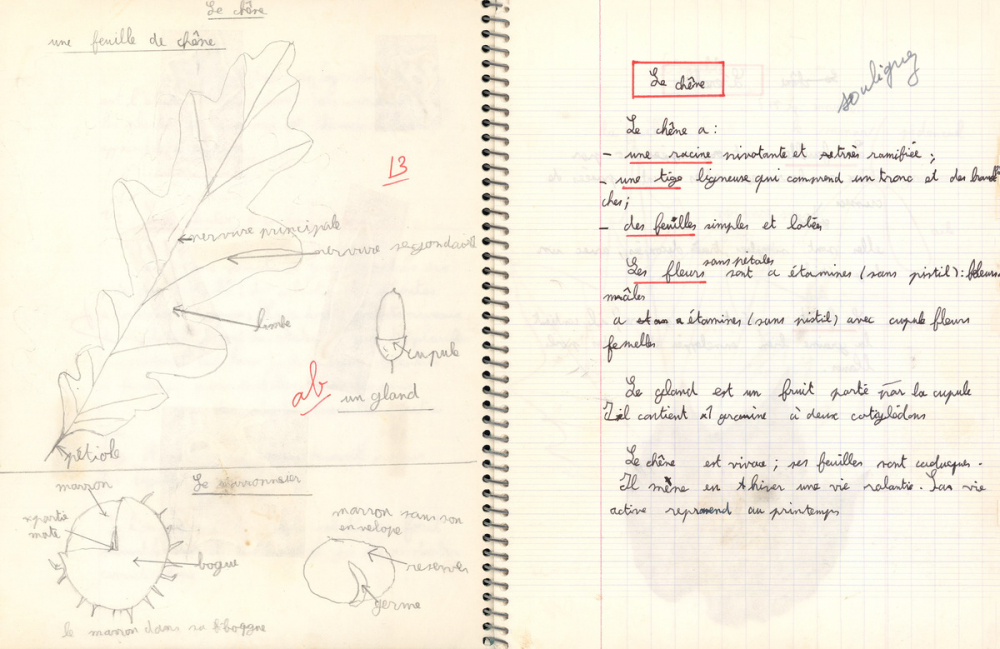 Le chêne
une feuille de chêne
13
nervure principale
nervure segondaire
limbe
cupule
ab
un gland
pétiole
Le marronnier
marron
partie
mate
bogue
le marron dans sa bogue
marron sans son
envelope
reserves
germe
Le chêne
souligner
Le chêne a :
- une racine pivotante et très ramifiée ;
- une tige ligneuse qui comprend un tronc et des bran
ches ;
- des feuilles simples et lobées
sans pétales
Les fleurs sont a étamines (sans pistil) : fleurs
mâles
a étamines (sans pistil) avec cupule fleurs
femelles
Le gland est un fruit porté par la cupule
Il contient 1 graine à deux cotylédons
Le chêne est vivace ; ses feuilles sont caduques.
Il mène en hiver une vie ralantie. Sa vie
active reprend au printemps